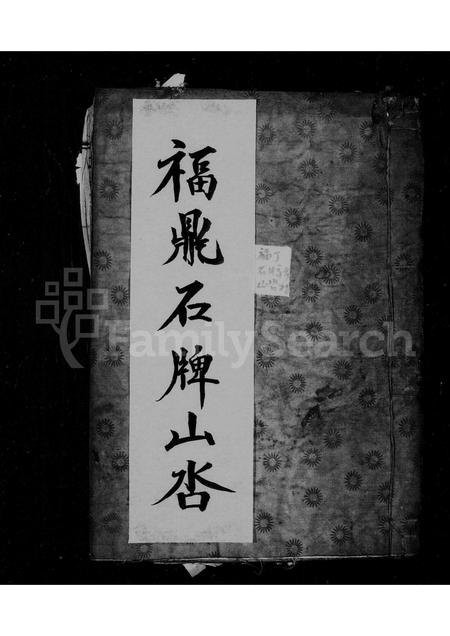 福鼎石牌山呇
福丁
FamilySearch